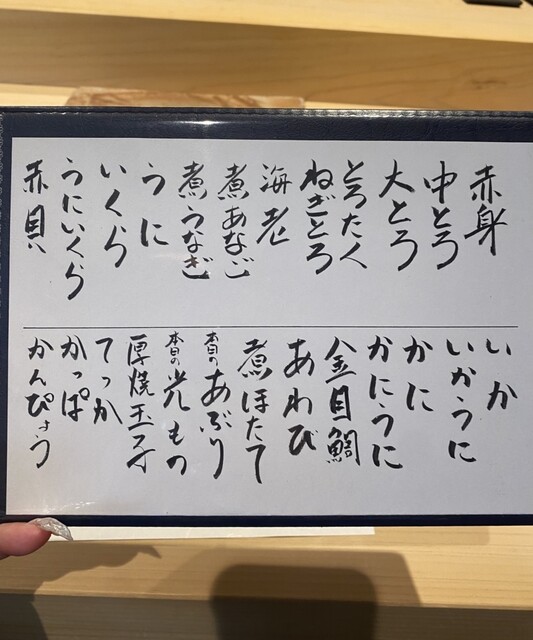 赤身
中とろ
大とろ
とろたく
ねぎとろ
海老
煮あなご
煮うなぎ
うに
いくら
うにいくら
赤貝
いか
いかうに
かに
かにうに
金目鯛
あわび
煮ほたて
本日のあぶり
本日の光もの
厚焼玉子
てっか
かっぱ
かんぴょう